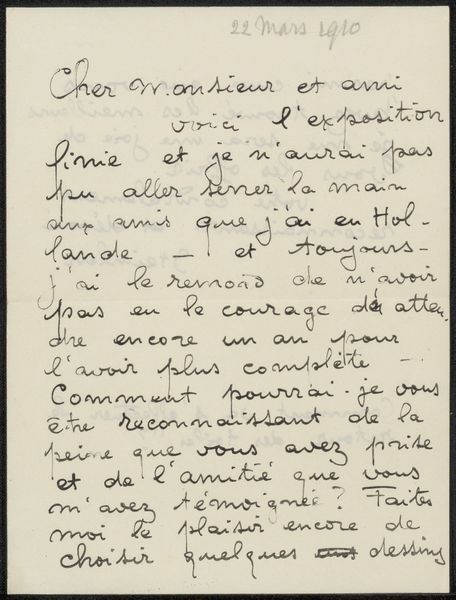 22 Mars 1910
Cher Monsieur et ami
voici l'exposition
finie et je n'aurai pas
pu aller serrer la main
aux amis que j'ai en Hol-
lande — et toujours —
j'ai le remord de n'avoir
pas eu le courage d'atten-
dre encore un an pour
l'avoir plus complète —
Comment pourrai-je vous
être reconnaissant de la
peine que vous avez prise
et de l'amitié que vous
m'avez témoignée? Faites
moi le plaisir encore de
choisir quelques dessins